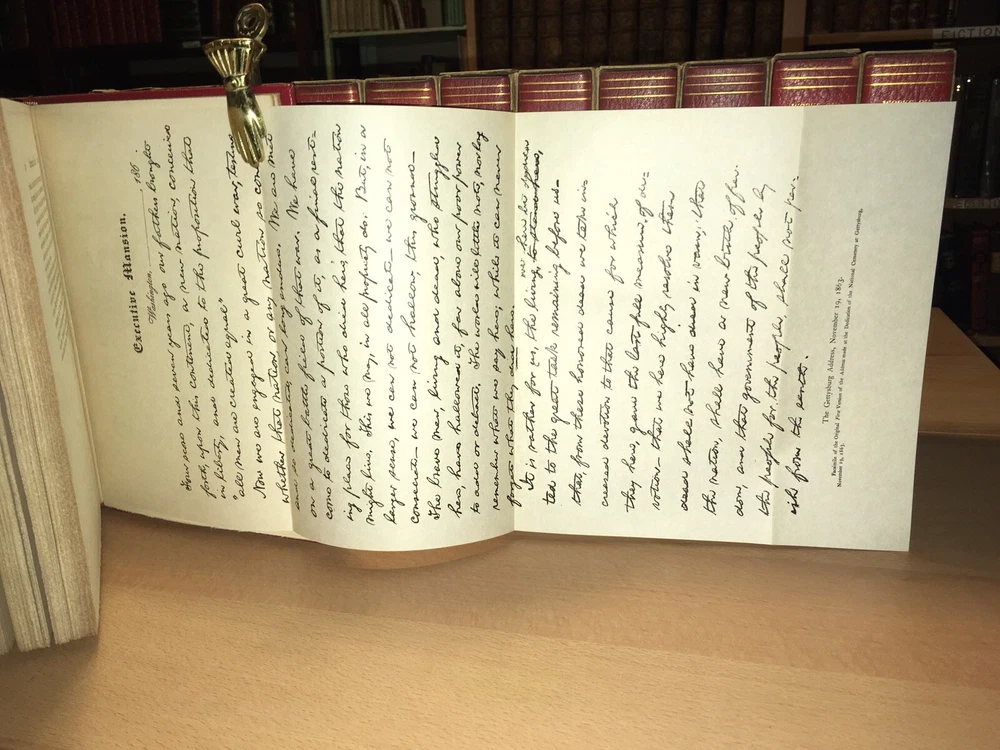 Executive Mansion,
Washington, 186 .
Four score and seven years ago our fathers brought
forth, upon this continent, a new nation, conceived
in liberty, and dedicated to the proposition that
"all men are created equal"
Now we are engaged in a great civil war, testing
whether that nation, or any nation so con
and so dedicated, can long endure. We are met
on a great battle field of that war. We have
come to dedicate a portion of it, as a final rest-
ing place for those who died here, that the nation
might live. This we may, in all propriety do. But, in a
larger sense, we can not dedicate — we can not
consecrate — we can not hallow, this ground —
The brave men, living and dead, who struggled
here, have hallowed it, far above our poor power
to add or detract. The world will little note, nor long
remember what we say here; while it can never
forget what they did here.
It is rather for us, the living, to stand here, we here be dedica-
ted to the great task remaining before us —
that, from these honored dead we take in-
creased devotion to that cause for which
they here, gave the last full measure of de-
votion — that we here highly resolve these
dead shall not have died in vain; that
the nation, shall have a new birth of free-
dom, and that government of the people by
the people for the people, shall not per-
ish from the earth.
The Gettysburg Address, November 19, 1863.
Facsimile of the Original First Version of the Address made at the Dedication of the National Cemetery at Gettysburg,
November 19, 1863.
FICTION